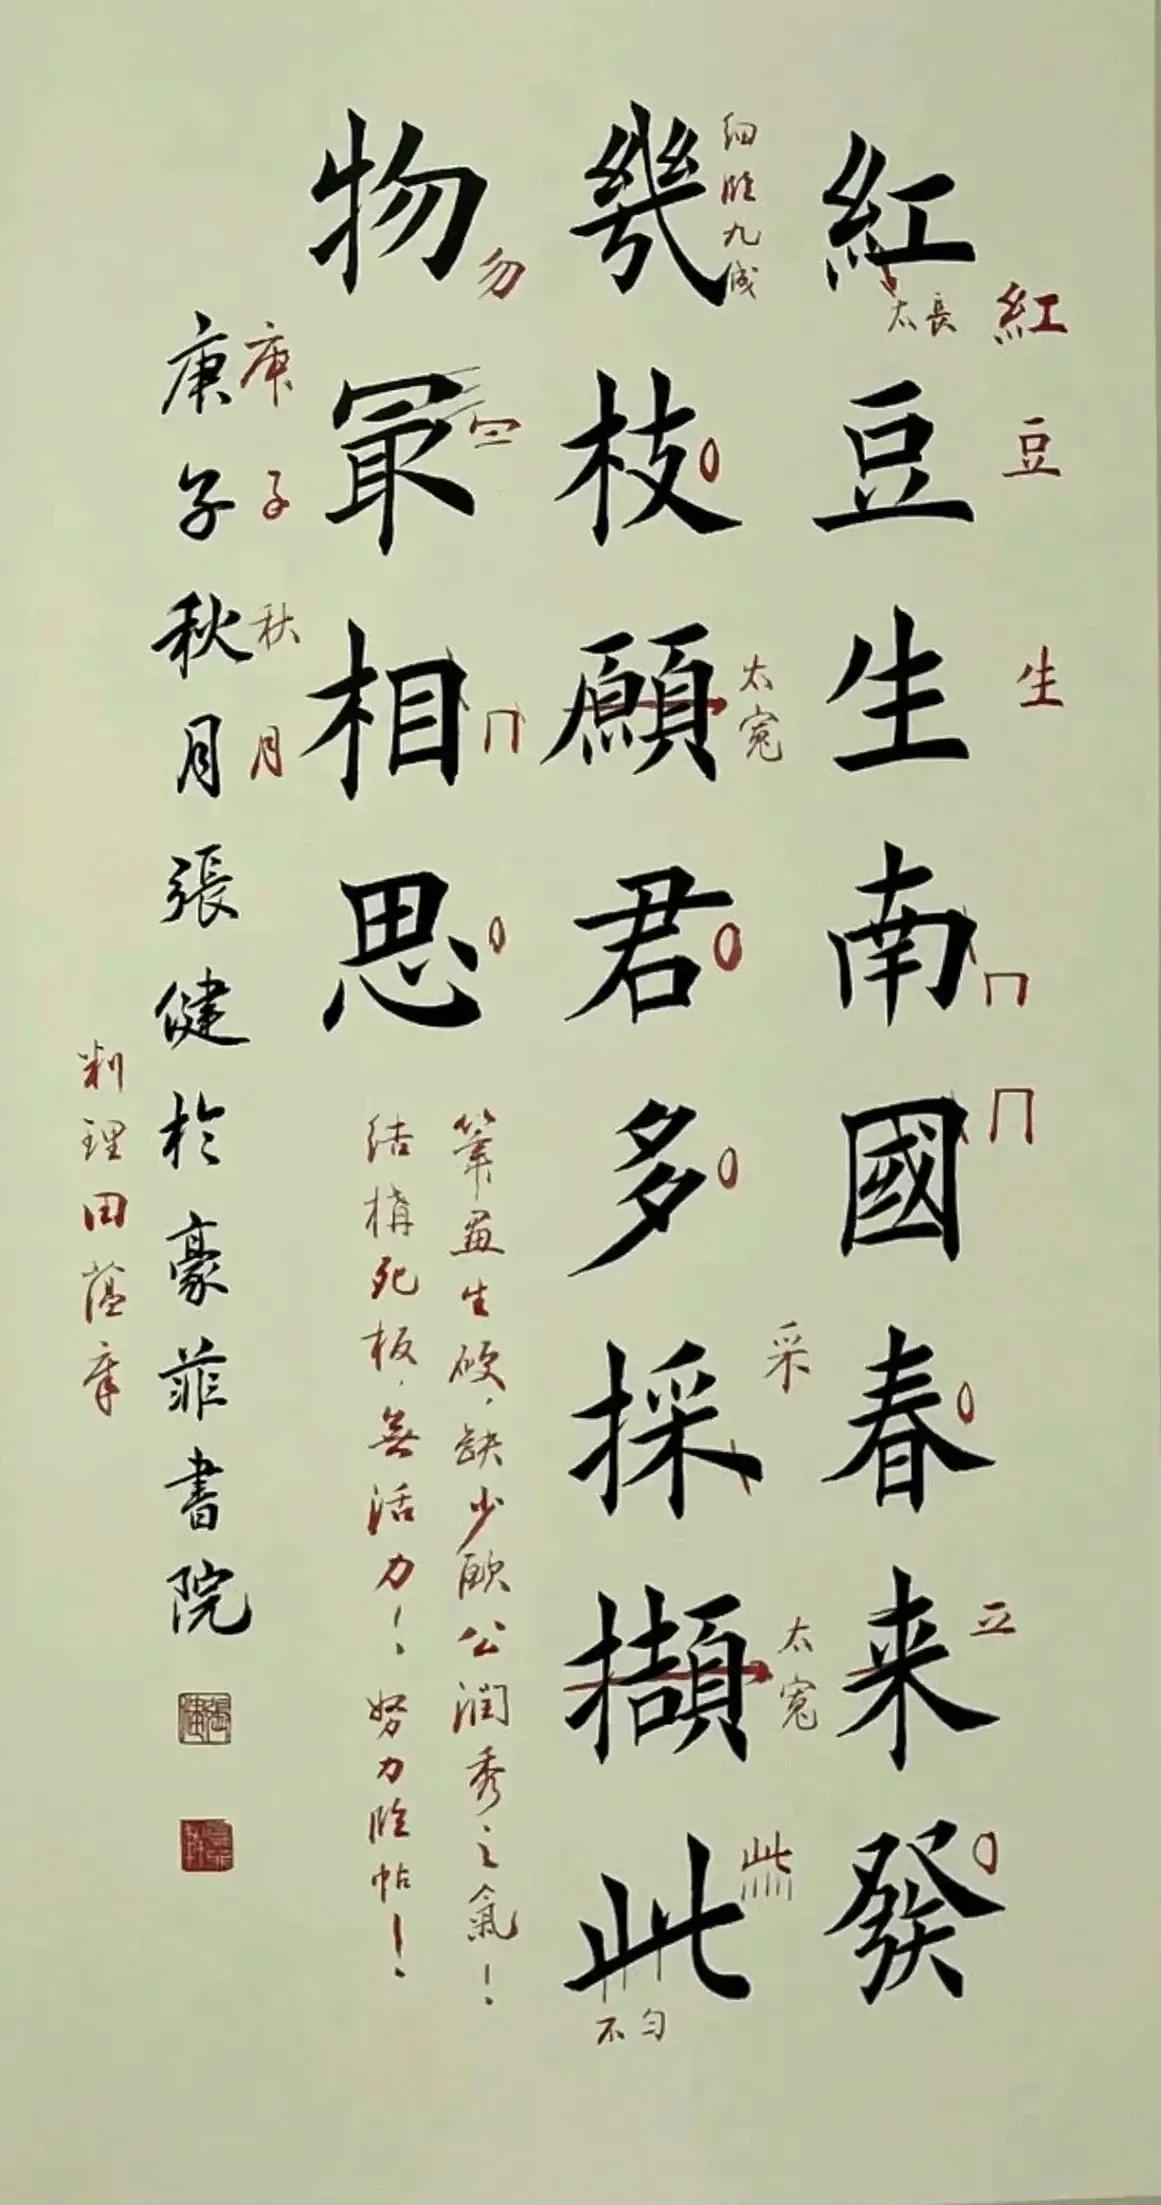 紅豆生南國春来發
幾枝願君多採擷此
物冣相思
庚子秋月張健於豪菲書院
紅
豆
生
太長
立
細臨九成
太寬
采
太寬
此
不匀
勿
筆畫生硬，缺少歐公潤秀之氣！
結構死板，無活力！努力臨帖！
庚子秋月
田蕴章